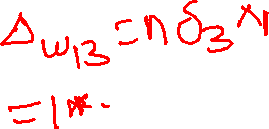 Δw13 = n δ3 x1
= 1*.